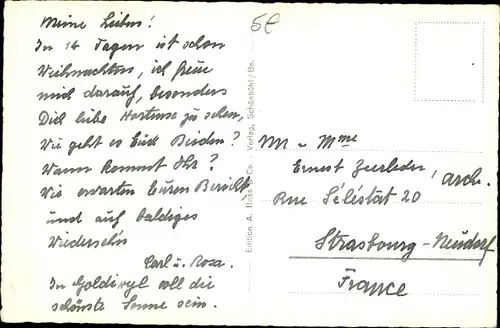 Meine Lieben!
In 14 Tagen ist schon
Weihnachten, ich freue
mich darauf, besonders
Dich liebe Hortense zu sehen,
Wie geht es Euch Beiden?
Wann kommt Ihr?
Wir erwarten Euren Bericht,
und auf baldiges
Wiedersehn
Carl u. Rosa.
In Goldiwyl soll die
schönste Sonne sein.
Edition A. & Co., Verlag, Schönbühl / Bn.
M. u Mme
Ernest Zeerleder, Arch.
Rue Sélestat 20
Strasbourg-Neudorf
France